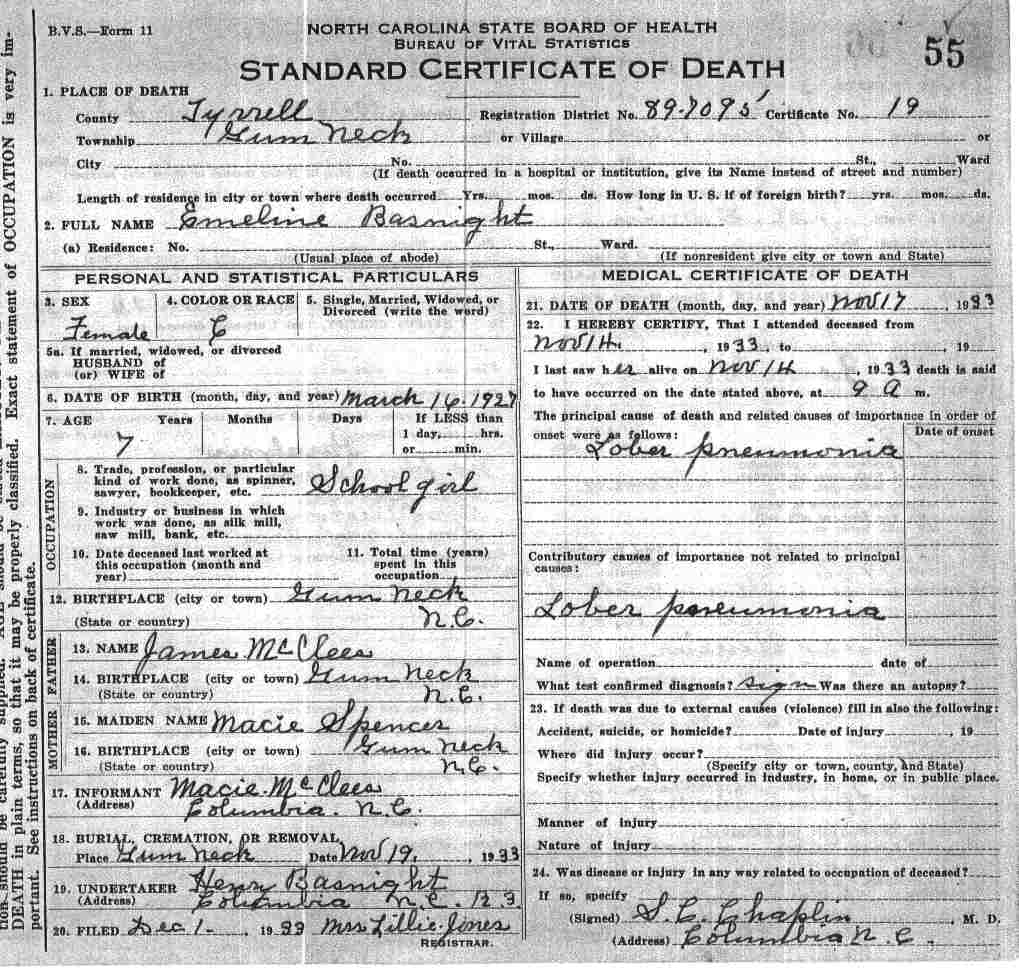 B.V.S.—Form 11
NORTH CAROLINA STATE BOARD OF HEALTH
BUREAU OF VITAL STATISTICS
55
STANDARD CERTIFICATE OF DEATH
1. PLACE OF DEATH
County Tyrrell Registration District No. 89-7095 Certificate No. 19
Township Gum Neck or Village or
City No. St., Ward
(If death occurred in a hospital or institution, give its Name instead of street and number)
Length of residence in city or town where death occurred Yrs. mos. ds. How long in U. S. if of foreign birth? yrs. mos. ds.
2. FULL NAME Emeline Basnight
(a) Residence: No. St., Ward.
(Usual place of abode) (If nonresident give city or town and State)
PERSONAL AND STATISTICAL PARTICULARS
3. SEX 4. COLOR OR RACE 5. Single, Married, Widowed, or
Divorced (write the word)
Female C
5a. If married, widowed, or divorced
HUSBAND of
(or) WIFE of
6. DATE OF BIRTH (month, day, and year) March 16. 1927
7. AGE Years Months Days If LESS than
1 day, hrs.
7 or min.
OCCUPATION
8. Trade, profession, or particular
kind of work done, as spinner,
sawyer, bookkeeper, etc. School girl
9. Industry or business in which
work was done, as silk mill,
saw mill, bank, etc.
10. Date deceased last worked at
this occupation (month and
year)
11. Total time (years)
spent in this
occupation
12. BIRTHPLACE (city or town) Gum Neck
(State or country) N.C.
FATHER
13. NAME James McClees
14. BIRTHPLACE (city or town) Gum Neck
(State or country) N.C.
MOTHER
15. MAIDEN NAME Macie Spencer
16. BIRTHPLACE (city or town) Gum Neck
(State or country) N.C.
17. INFORMANT Macie McClees
(Address) Columbia. N.C.
18. BURIAL, CREMATION, OR REMOVAL
Place Gum Neck Date Nov 19, 1933
19. UNDERTAKER Henry Basnight
(Address) Columbia N.C.
20. FILED Dec 1- 1933 Mrs Lillie Jones
REGISTRAR.
MEDICAL CERTIFICATE OF DEATH
21. DATE OF DEATH (month, day, and year) Nov 17, 1933
22. I HEREBY CERTIFY, That I attended deceased from
Nov 14, 1933, to , 19
I last saw her alive on Nov 14, 1933 death is said
to have occurred on the date stated above, at 9 a m.
The principal cause of death and related causes of importance in order of
onset were as follows: Date of onset
Lober pneumonia
Contributory causes of importance not related to principal
causes:
Lober pneumonia
Name of operation date of
What test confirmed diagnosis? sign Was there an autopsy?
23. If death was due to external causes (violence) fill in also the following:
Accident, suicide, or homicide? Date of injury , 19
Where did injury occur?
(Specify city or town, county, and State)
Specify whether injury occurred in industry, in home, or in public place.
Manner of injury
Nature of injury
24. Was disease or injury in any way related to occupation of deceased?
If so, specify
(Signed) S. C. Chaplin, M. D.
(Address) Columbia N. C.
DEATH in plain terms, so that it may be properly classified. Exact statement of OCCUPATION is very im-
portant. See instructions on back of certificate.